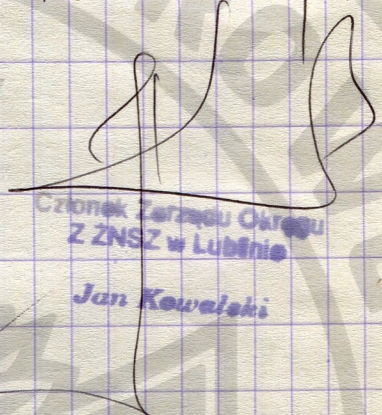 Członek Zarządu Okręgu
Z ŻNSZ w Lublinie
Jan Kowalski